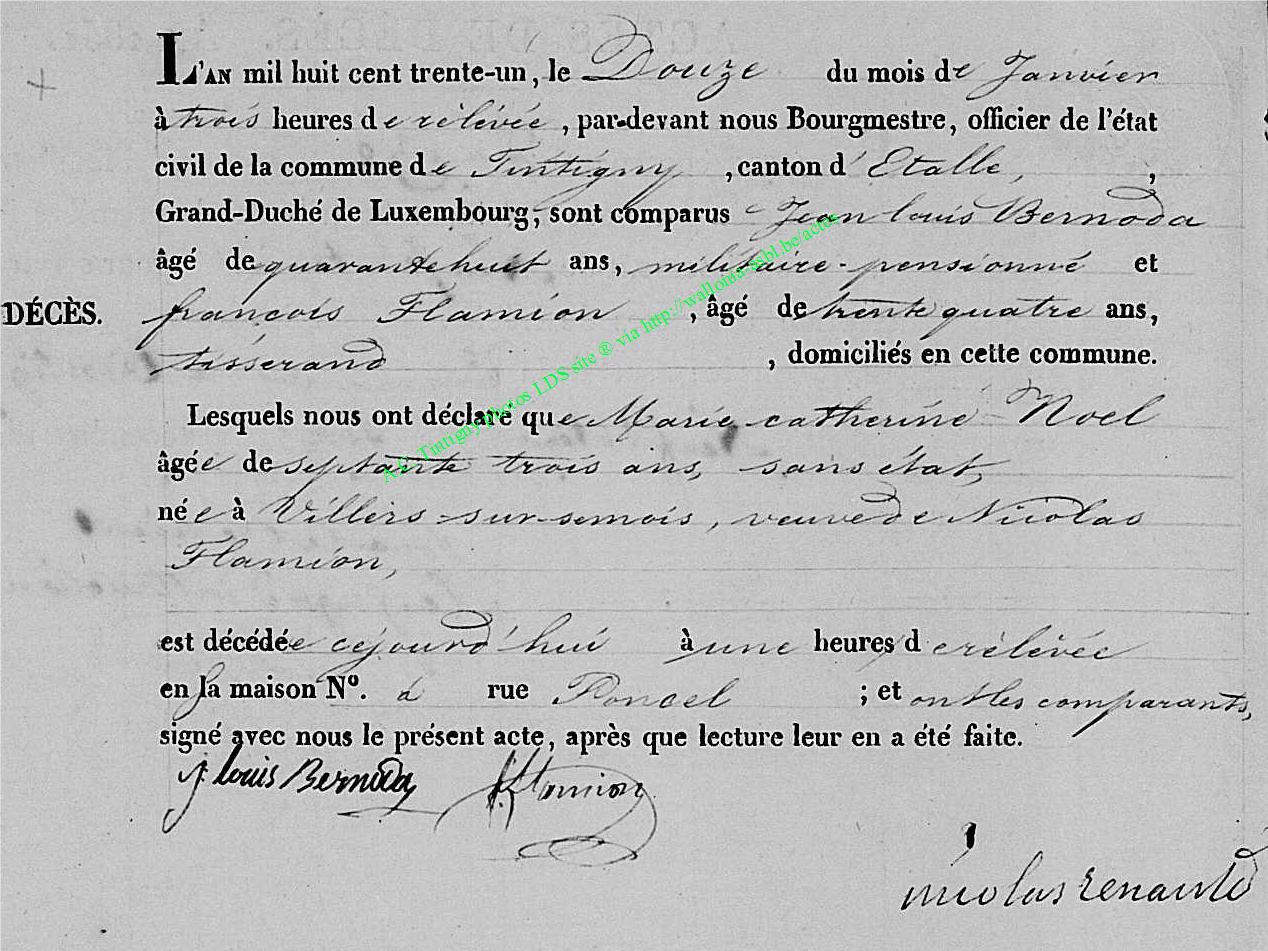 L'AN mil huit cent trente-un, le Douze du mois de Janvier
à trois heures de rélévée, par-devant nous Bourgmestre, officier de l'état
civil de la commune de Tintigny, canton d'Etalle, ,
Grand-Duché de Luxembourg, sont comparus Jean louis Bernoda
âgé de quarante huit ans, militaire-pensionné et
DÉCÈS. françois Flamion, âgé de trente quatre ans,
tisserand, domiciliés en cette commune.
Lesquels nous ont déclaré que Marie catheriné Noel
âgée de septante trois ans, sans état,
née à Villers-sur-semois, veuve de Nicolas
Flamion,
est décédée cejourd'hui à une heures de rélévée
en la maison N°. à rue Poncel ; et ont les comparants,
signé avec nous le présent acte, après que lecture leur en a été faite.
J. louis Bernoda f. flamion
nicolas renauld
A.C. Tintigny photos LDS site ® via http://wallonia-asbl.be/actes